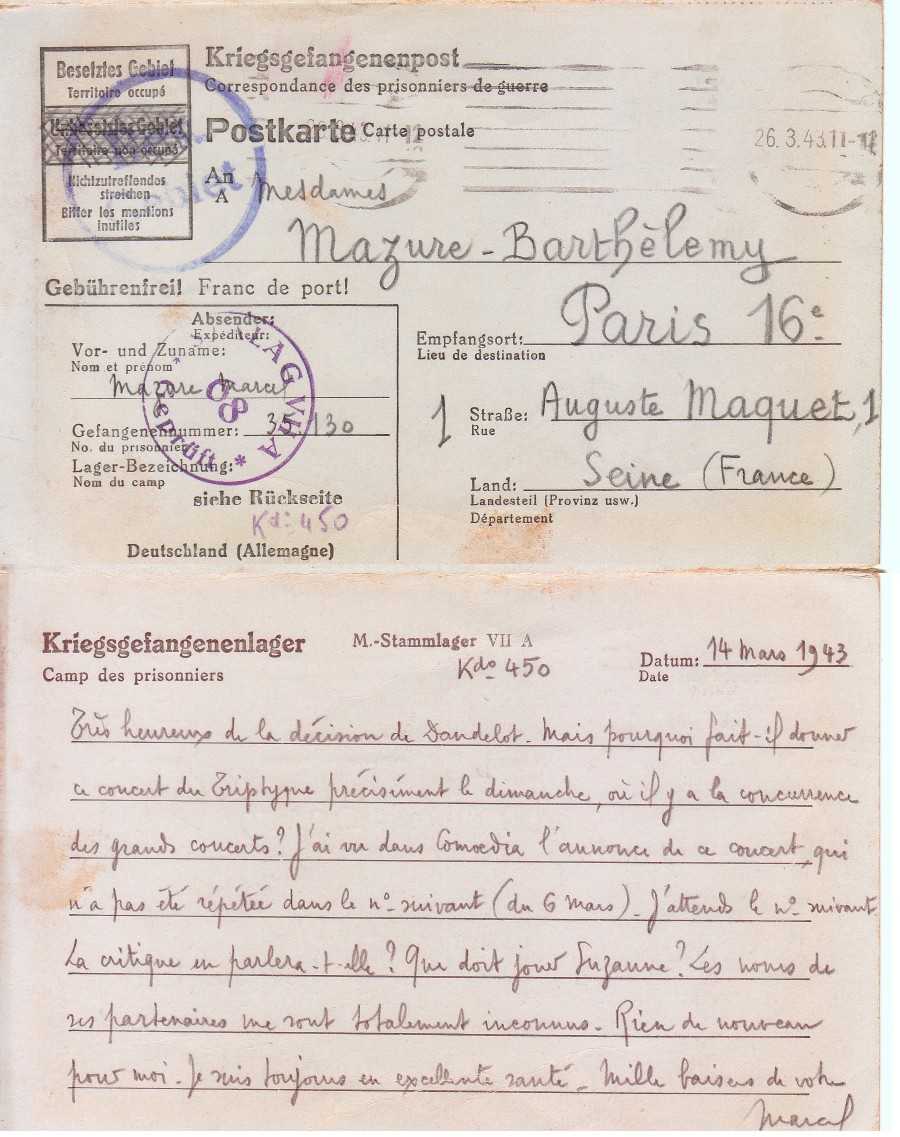 Besetztes Gebiet
Territoire occupé
Unbesetztes Gebiet
Territoire non occupé
Nichtzutreffendes
streichen
Biffer les mentions
inutiles
Kriegsgefangenenpost
Correspondance des prisonniers de guerre
Postkarte Carte postale
26.3.43.11-12
An
A
Mesdames
Mazure-Barthèlemy
Gebührenfrei! Franc de port!
Absender:
Expéditeur:
Vor- und Zuname:
Nom et prénom
Mazure Marcel
Gefangenennummer: 35.130
No. du prisonnier
Lager-Bezeichnung:
Nom du camp
siehe Rückseite
Kdo 450
Deutschland (Allemagne)
STALAG VII A
08
Geprüft
Empfangsort: Paris 16e
Lieu de destination
1
Straße: Auguste Maquet, 1
Rue
Land: Seine (France)
Landesteil (Provinz usw.)
Département
Kriegsgefangenenlager M.-Stammlager VII A
Camp des prisonniers
Kdo 450
Datum: 14 Mars 1943
Date
Très heureux de la décision de Dandelot. Mais pourquoi fait-il donner
ce concert du Triptyque précisément le dimanche, où il y a la concurrence
des grands concerts? J'ai vu dans Comœdia l'annonce de ce concert, qui
n'a pas été répétée dans le no suivant (du 6 mars). J'attends le no suivant.
La critique en parlera-t-elle? Que doit jouer Suzanne? Les noms de
ses partenaires me sont totalement inconnus. Rien de nouveau
pour moi. Je suis toujours en excellente santé. Mille baisers de votre
Marcel